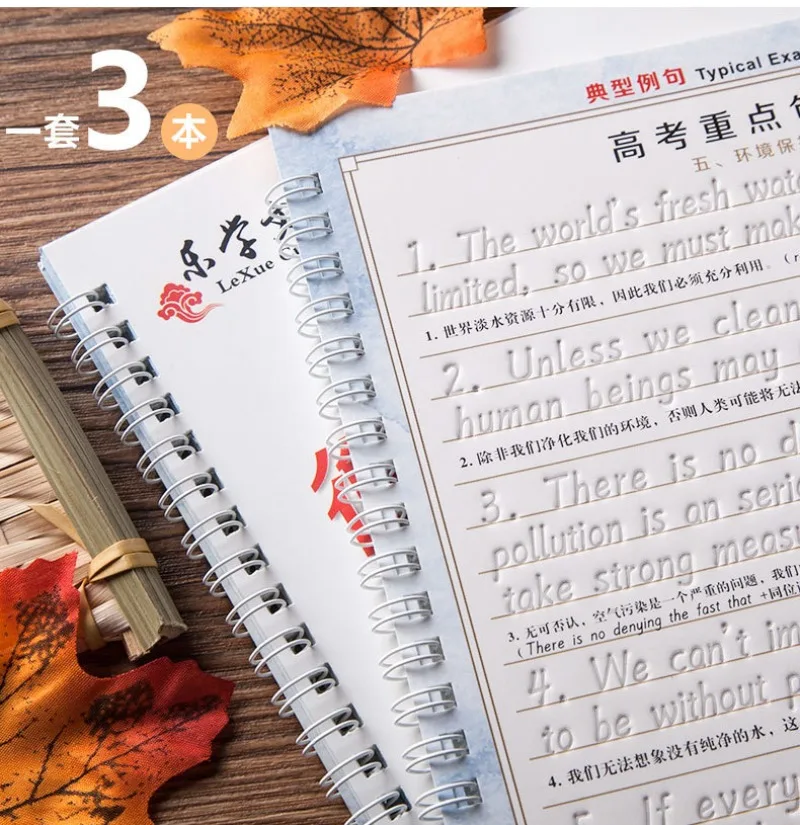 一套3本
典型例句 Typical
高考重点
五、环境保
乐学
LeXue
1. The world's fresh
limited, so we must
1. 世界淡水资源十分有限，因此我们必须充分利用。
2. Unless we clean
human beings may
2. 除非我们净化我们的环境，否则人类可能将无
3. There is no
pollution is an
take strong
3. 无可否认，空气污染是一个严重的问题，我们
(There is no denying the fast that +同位
4. We can't
to be without
4. 我们无法想象没有纯净的水，这
5. If every